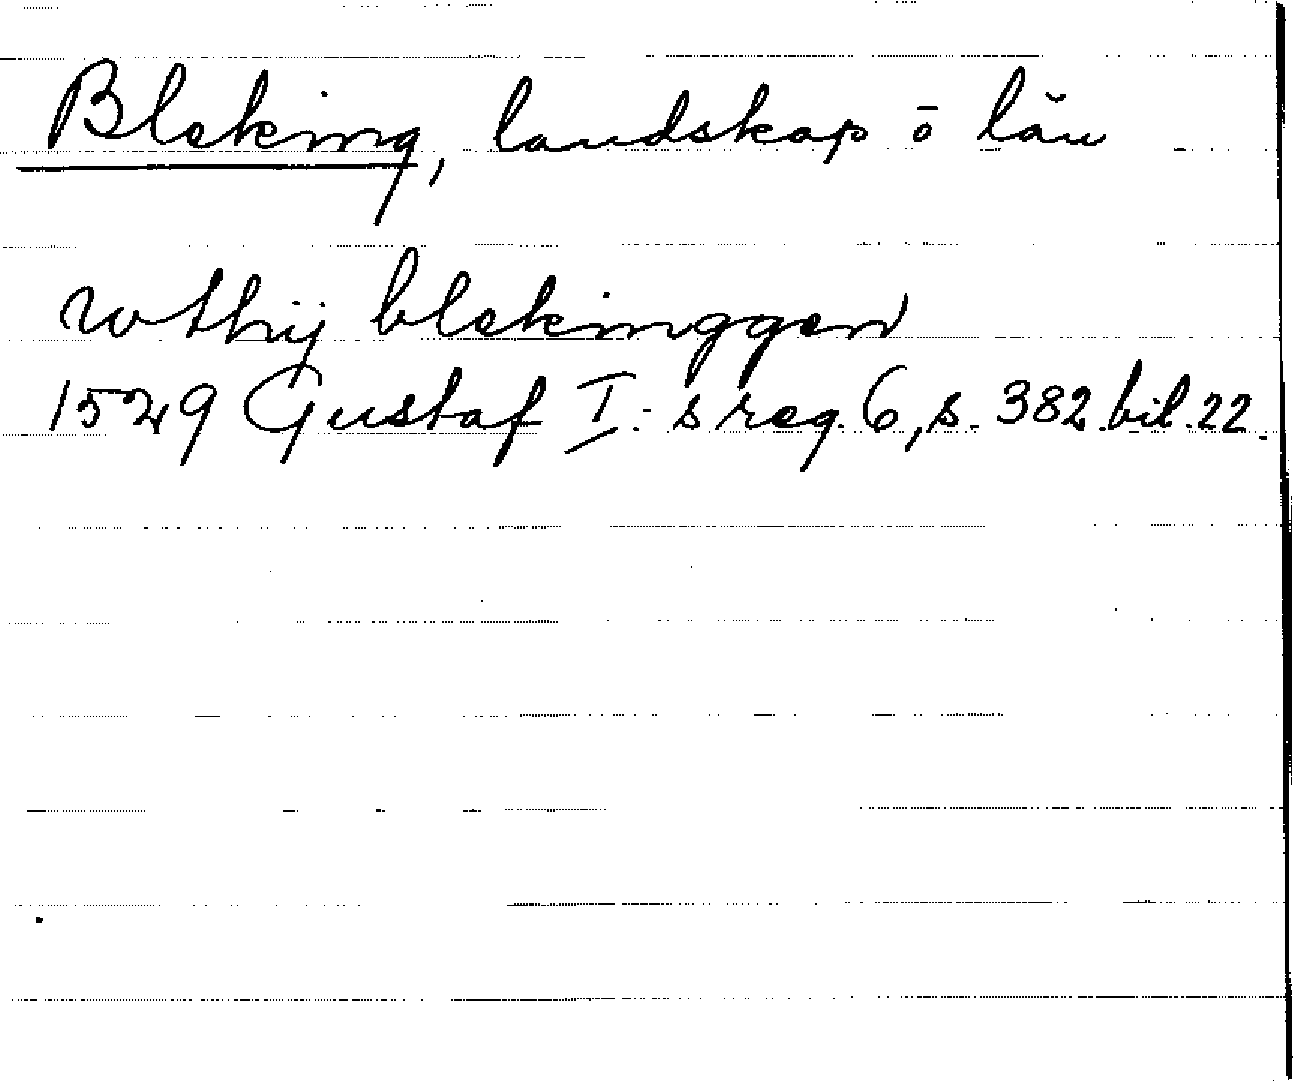 Bleking, landskap o län
wthij blekinggen
1529 Gustaf I:s reg. 6, s. 382 bil. 22.